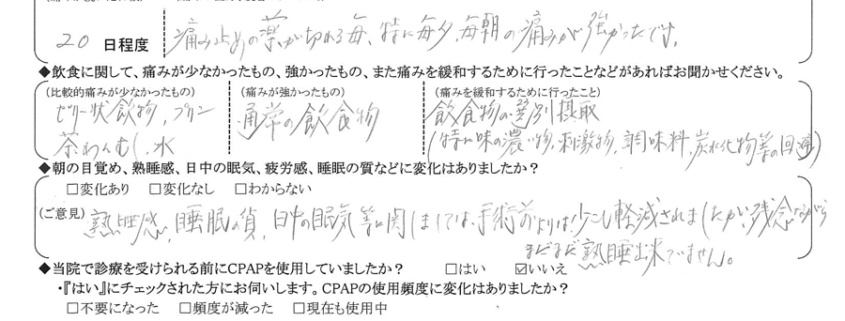 20 日程度 痛み止めの薬が切れる毎、特に毎夕、毎朝の痛みが強かったです。
◆飲食に関して、痛みが少なかったもの、強かったもの、また痛みを緩和するために行ったことなどがあればお聞かせください。
(比較的痛みが少なかったもの) (痛みが強かったもの) (痛みを緩和するために行ったこと)
ゼリー状飲物、プリン 通常の飲食物 飲食物の選別摂取
茶わんむし、水 (特に味の濃い物、刺激物、調味料、炭水化物等の回避)
◆朝の目覚め、熟睡感、日中の眠気、疲労感、睡眠の質などに変化はありましたか?
□変化あり □変化なし □わからない
(ご意見) 熟睡感、睡眠の質、日中の眠気等に関しましては、手術前よりは少し軽減されましたが、残念ながら
まだまだ熟睡出来ていません。
◆当院で診療を受けられる前にCPAPを使用していましたか? □はい ☑いいえ
・『はい』にチェックされた方にお伺いします。CPAPの使用頻度に変化はありましたか?
□不要になった □頻度が減った □現在も使用中